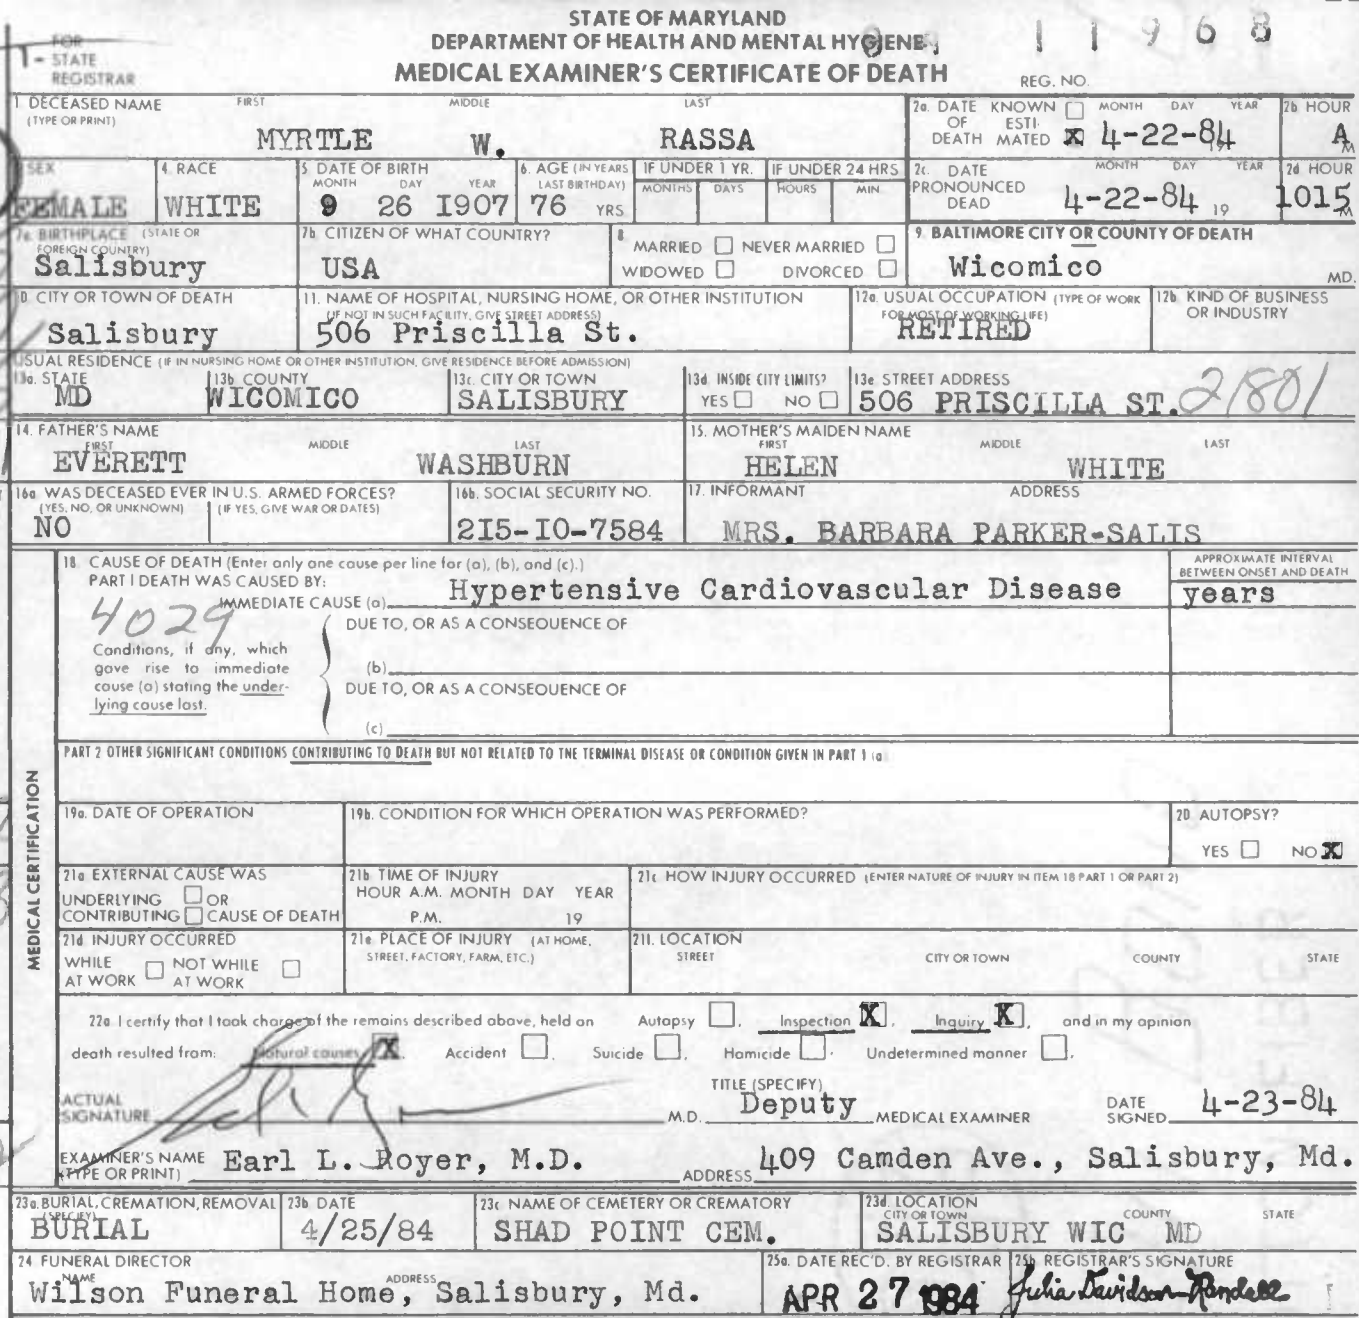 STATE OF MARYLAND
DEPARTMENT OF HEALTH AND MENTAL HYGIENE
MEDICAL EXAMINER'S CERTIFICATE OF DEATH
11968
REG. NO.
1 - FOR
STATE
REGISTRAR
1. DECEASED NAME FIRST MIDDLE LAST
(TYPE OR PRINT)
MYRTLE W. RASSA
2a. DATE KNOWN ☐ MONTH DAY YEAR
OF ESTI-
DEATH MATED ☒ 4-22-84
2b HOUR
A M
SEX
FEMALE
4. RACE
WHITE
5. DATE OF BIRTH
MONTH DAY YEAR
9 26 1907
6. AGE (IN YEARS
LAST BIRTHDAY)
76 YRS
IF UNDER 1 YR.
MONTHS DAYS
IF UNDER 24 HRS
HOURS MIN.
2c. DATE MONTH DAY YEAR
PRONOUNCED
DEAD 4-22-84 19
2d HOUR
1015 M
7a. BIRTHPLACE (STATE OR
FOREIGN COUNTRY)
Salisbury
7b. CITIZEN OF WHAT COUNTRY?
USA
8
MARRIED ☐ NEVER MARRIED ☐
WIDOWED ☐ DIVORCED ☐
9. BALTIMORE CITY OR COUNTY OF DEATH
Wicomico
MD.
10. CITY OR TOWN OF DEATH
Salisbury
11. NAME OF HOSPITAL, NURSING HOME, OR OTHER INSTITUTION
(IF NOT IN SUCH FACILITY, GIVE STREET ADDRESS)
506 Priscilla St.
12a. USUAL OCCUPATION (TYPE OF WORK
FOR MOST OF WORKING LIFE)
RETIRED
12b. KIND OF BUSINESS
OR INDUSTRY
USUAL RESIDENCE (IF IN NURSING HOME OR OTHER INSTITUTION, GIVE RESIDENCE BEFORE ADMISSION)
13a. STATE
MD
13b. COUNTY
WICOMICO
13c. CITY OR TOWN
SALISBURY
13d. INSIDE CITY LIMITS?
YES ☐ NO ☐
13e. STREET ADDRESS
506 PRISCILLA ST. 21801
14. FATHER'S NAME
FIRST MIDDLE LAST
EVERETT WASHBURN
15. MOTHER'S MAIDEN NAME
FIRST MIDDLE LAST
HELEN WHITE
16a. WAS DECEASED EVER IN U.S. ARMED FORCES?
(YES, NO, OR UNKNOWN) (IF YES, GIVE WAR OR DATES)
NO
16b. SOCIAL SECURITY NO.
2I5-I0-7584
17. INFORMANT ADDRESS
MRS. BARBARA PARKER-SALIS
18. CAUSE OF DEATH (Enter only one cause per line for (a), (b), and (c).)
PART I DEATH WAS CAUSED BY:
APPROXIMATE INTERVAL
BETWEEN ONSET AND DEATH
IMMEDIATE CAUSE (a) Hypertensive Cardiovascular Disease years
4029
DUE TO, OR AS A CONSEQUENCE OF
Conditions, if any, which
gave rise to immediate
cause (a) stating the under-
lying cause last.
(b)
DUE TO, OR AS A CONSEQUENCE OF
(c)
PART 2 OTHER SIGNIFICANT CONDITIONS CONTRIBUTING TO DEATH BUT NOT RELATED TO THE TERMINAL DISEASE OR CONDITION GIVEN IN PART 1 (a)
MEDICAL CERTIFICATION
19a. DATE OF OPERATION
19b. CONDITION FOR WHICH OPERATION WAS PERFORMED?
20 AUTOPSY?
YES ☐ NO ☒
21a EXTERNAL CAUSE WAS
UNDERLYING ☐ OR
CONTRIBUTING ☐ CAUSE OF DEATH
21b TIME OF INJURY
HOUR A.M. MONTH DAY YEAR
P.M. 19
21c HOW INJURY OCCURRED (ENTER NATURE OF INJURY IN ITEM 18 PART 1 OR PART 2)
21d INJURY OCCURRED
WHILE ☐ NOT WHILE ☐
AT WORK AT WORK
21e PLACE OF INJURY (AT HOME,
STREET, FACTORY, FARM, ETC.)
21f. LOCATION
STREET CITY OR TOWN COUNTY STATE
22a I certify that I took charge of the remains described above, held an Autopsy ☐, Inspection ☒, Inquiry ☒, and in my opinion
death resulted from: Natural causes ☒, Accident ☐, Suicide ☐, Homicide ☐, Undetermined manner ☐,
ACTUAL
SIGNATURE M.D.
TITLE (SPECIFY)
Deputy MEDICAL EXAMINER
DATE
SIGNED 4-23-84
EXAMINER'S NAME
(TYPE OR PRINT) Earl L. Royer, M.D.
ADDRESS 409 Camden Ave., Salisbury, Md.
23a. BURIAL, CREMATION, REMOVAL
(SPECIFY)
BURIAL
23b DATE
4/25/84
23c NAME OF CEMETERY OR CREMATORY
SHAD POINT CEM.
23d. LOCATION
CITY OR TOWN COUNTY STATE
SALISBURY WIC MD
24 FUNERAL DIRECTOR
NAME ADDRESS
Wilson Funeral Home, Salisbury, Md.
25a. DATE REC'D. BY REGISTRAR
APR 27 1984
25b REGISTRAR'S SIGNATURE
Julia Davidson-Randall